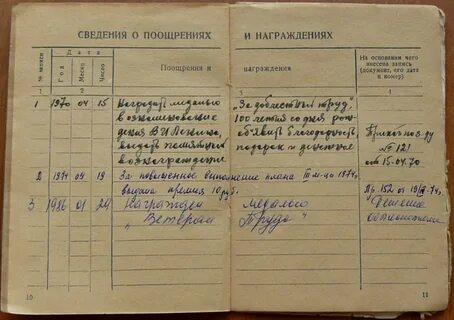 СВЕДЕНИЯ О ПООЩРЕНИЯХ И НАГРАЖДЕНИЯХ
№ записи Дата Год Месяц Число Поощрения и награждения На основании чего внесена запись (документ, его дата и номер)
1 2 3 4
1 1970 04 15 Наградить медалью "За доблестный труд"
в ознаменование 100-летия со дня рож
дня В И Ленина, объявить благодарность Приказ по з-ду
выдать подарок и денежное № 121
вознаграждение от 15.04.70
2 1974 04 19 За повышенное выполнение плана III м-ца 1974г.
выдана премия 10 руб. № 152 от 74г.
3 1986 01 24 Награжден медалью Решение
"Ветеран Труда"
10 11